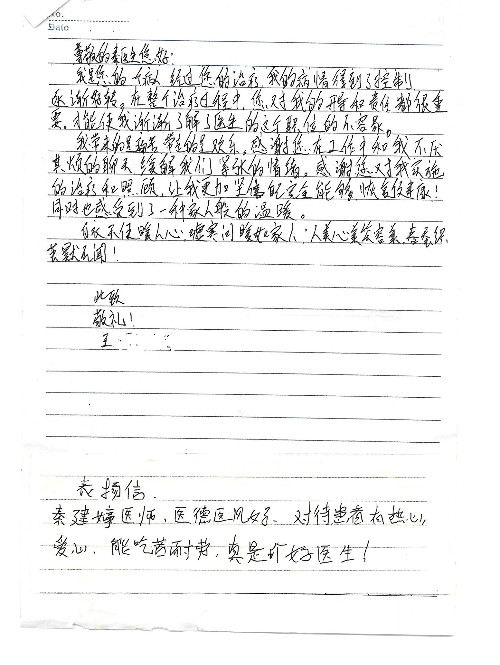 No.
Date
尊敬的秦医生您好:
我是您的一个病人 经过您的治疗 我的病情得到了控制
在整个治疗过程中 您对我的开导和责任都很重
要。才能使我渐渐了解了医生的这个职位的不容易。
我带来的是 带走的是欢乐。感谢您在工作中和我不厌
其烦的聊天 缓解我们紧张的情绪。感谢您对我实施
的治疗和照顾 让我更加坚信 完全能够恢复健康!
同时也感受到了一种家人般的温暖。
暖人心 嘘寒问暖如家人 人美心美
默无闻!
此致
敬礼!
王
表扬信
秦建婷医师、医德医风好、对待患者有热心,
爱心、能吃苦耐劳、真是个好医生!